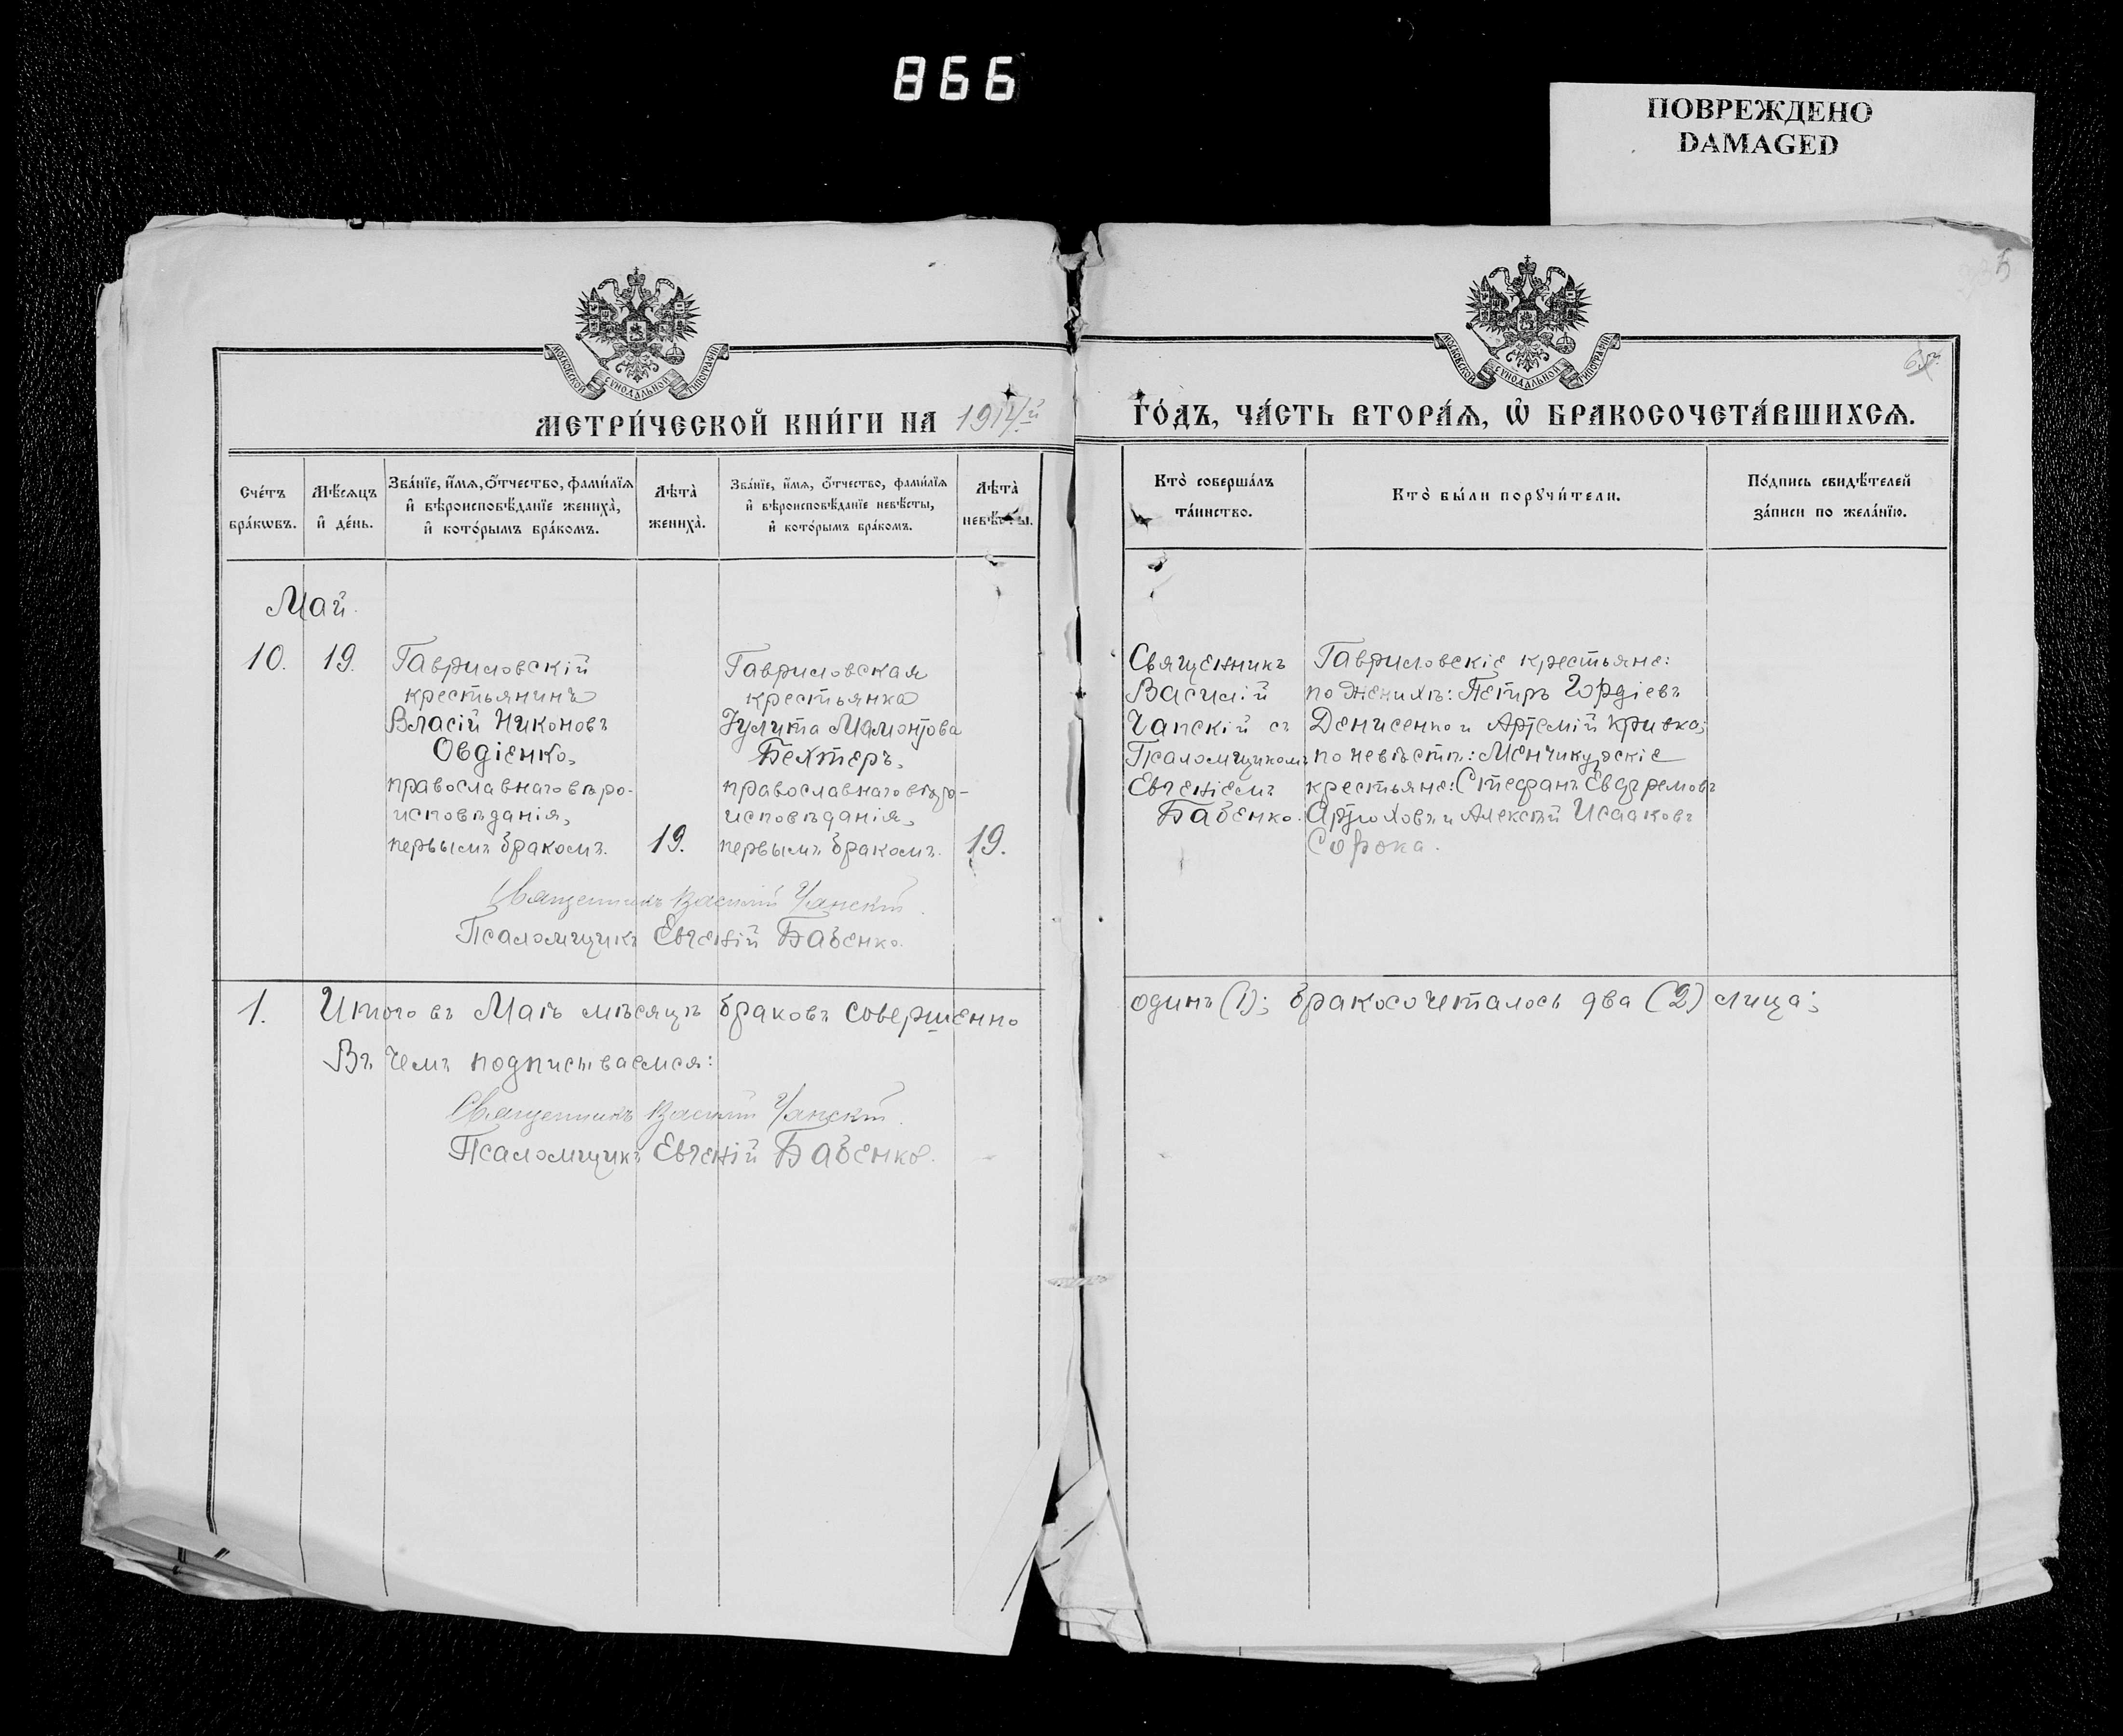 866
ПОВРЕЖДЕНО
DAMAGED
МОСКОВСКОЙ СУНОДАЛЬНОЙ ТИПОГРАФІИ
МОСКОВСКОЙ СУНОДАЛЬНОЙ ТИПОГРАФІИ
МЕТРИ́ЧЕСКОЙ КНИ́ГИ НА 1914й
ГО́ДЪ, ЧА́СТЬ ВТОРА́Ѧ, Ѡ҆ БРАКОСОЧЕТА́ВШИХСѦ.
Сче́тъ бра́кѡвъ.
Мѣ́сяцъ и҆ де́нь.
Зва́нїе, и҆́мѧ, ѻ҆́тчество, фами́лїѧ
и҆ вѣроисповѣ́данїе жениха̀,
и҆ кото́рымъ бра́комъ.
Лѣта̀ жениха̀.
Зва́нїе, и҆́мѧ, ѻ҆́тчество, фами́лїѧ
и҆ вѣроисповѣ́данїе невѣ́сты,
и҆ кото́рымъ бра́комъ.
Лѣта̀ невѣ́сты.
Кто̀ соверша́лъ та́инство.
Кто̀ бы́ли порꙋчи́тели.
По́дпись свидѣ́телей
за́писи по жела́нїю.
Май.
10.
19.
Гавриловскій
крестьянинъ
Власій Никоновъ
Овдіенко,
православнаго вѣро-
исповѣданія,
первымъ бракомъ.
19.
Гавриловская
крестьянка
Іулита Мамонтова
Бехтеръ,
православнаго вѣро-
исповѣданія,
первымъ бракомъ.
19.
Священникъ
Василій
Чапскій съ
Псаломщикомъ
Евгеніемъ
Бабенко.
Гавриловскіе крестьяне:
по женихѣ: Петръ Гордіевъ
Денисенко и Артемій Кривко;
по невѣстѣ: Менчикурскіе
крестьяне: Стефанъ Евфремовъ
Артюховъ и Алексѣй Исааковъ
Сорока.
Священникъ Василій Чапскій.
Псаломщикъ Евгеній Бабенко.
1.
Итого въ Маѣ мѣсяцѣ браковъ совершенно
одинъ (1); бракосочеталось два (2) лица;
Въ чемъ подписываемся:
Священникъ Василій Чапскій.
Псаломщикъ Евгеній Бабенко.